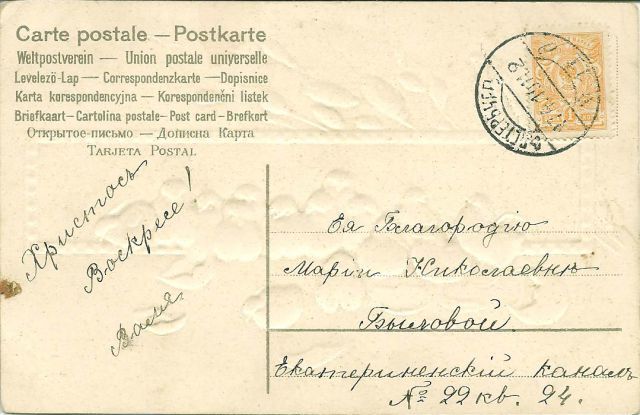 Carte postale — Postkarte
Weltpostverein — Union postale universelle
Levelező-Lap — Correspondenzkarte — Dopisnice
Karta korespondencyjna — Korespondenční listek
Briefkaart — Cartolina postale — Post card — Brefkort
Открытое-письмо — Дописна Карта
Tarjeta Postal
Христосъ
Воскресе!
Ваня
Ея Благородію
Маріи Николаевнѣ
Быловой.
Екатериненскій каналъ
№ 22 кв. 24.